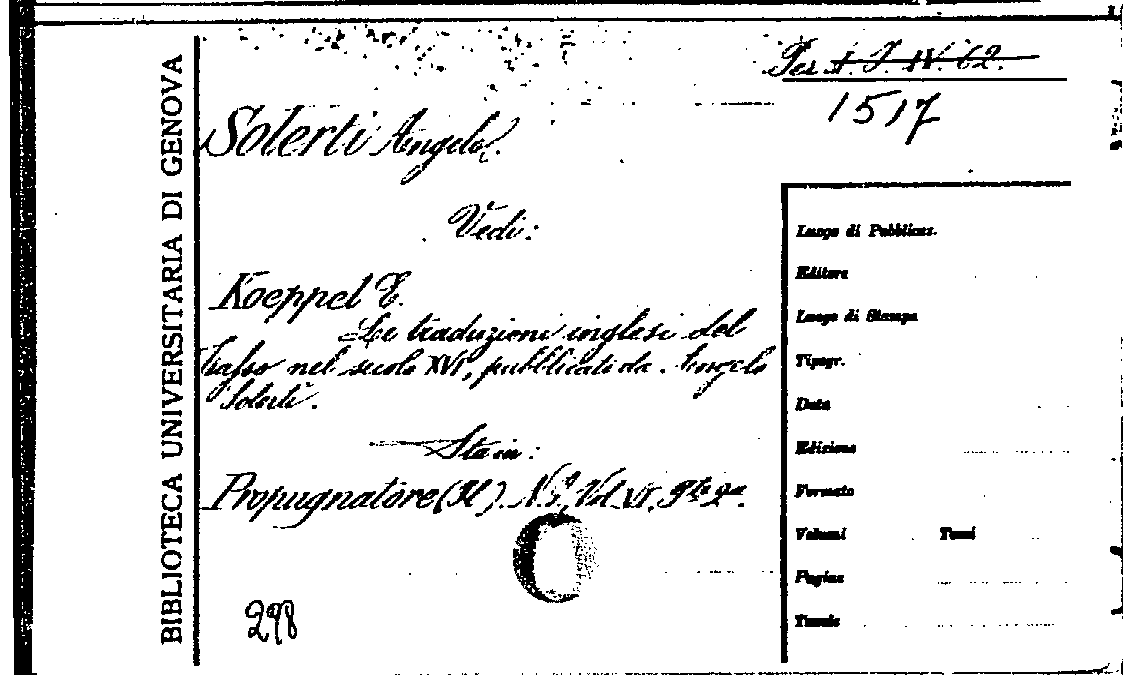 BIBLIOTECA UNIVERSITARIA DI GENOVA
Per A. I. IV. 62.
1517
Solerti Angelo.
Vedi:
Koeppel E.
Le traduzioni inglesi del
Tasso nel secolo XVI, pubblicati da Angelo
Solerti.
Sta in:
Propugnatore (Il). N.S., Vol. VI, Pte 2a.
298
Luogo di Pubblicaz.
Editore
Luogo di Stampa
Tipogr.
Data
Edizione
Formato
Volumi Tomi
Pagine
Tavole